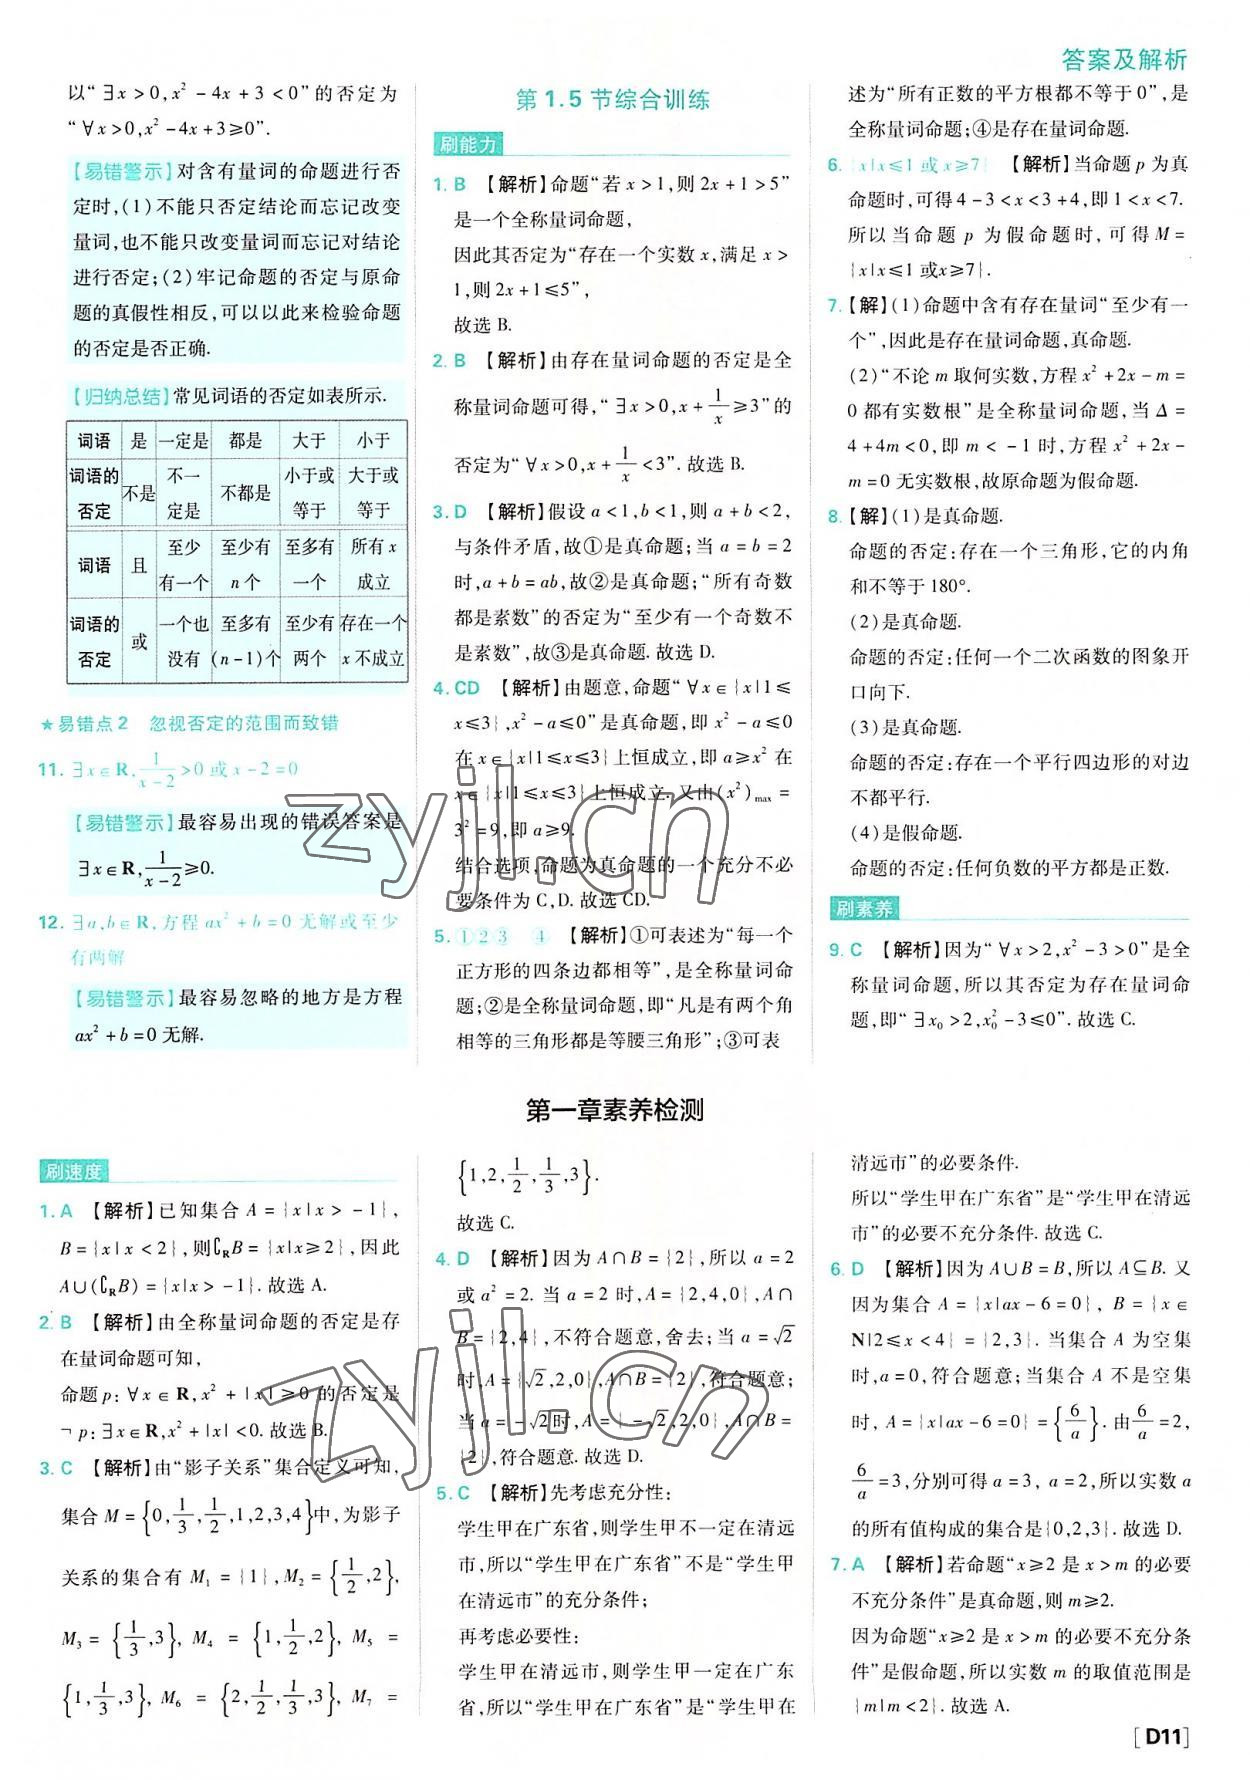 答案及解析
以“∃x>0,x²-4x+3<0”的否定为
“∀x>0,x²-4x+3≥0”.
【易错警示】对含有量词的命题进行否
定时,(1)不能只否定结论而忘记改变
量词,也不能只改变量词而忘记对结论
进行否定;(2)牢记命题的否定与原命
题的真假性相反,可以以此来检验命题
的否定是否正确.
【归纳总结】常见词语的否定如表所示.
词语 是 一定是 都是 大于 小于
词语的否定 不是 不一定是 不都是 小于或等于 大于或等于
词语 且 至少有一个 至少有n个 至多有一个 所有x成立
词语的否定 或 一个也没有 至多有(n-1)个 至少有两个 存在一个x不成立
★易错点2 忽视否定的范围而致错
11. ∃x∈R,1/(x-2)>0或x-2=0
【易错警示】最容易出现的错误答案是
∃x∈R,1/(x-2)≥0.
12. ∃a,b∈R,方程ax²+b=0无解或至少
有两解
【易错警示】最容易忽略的地方是方程
ax²+b=0无解.
第1.5节综合训练
刷能力
1. B 【解析】命题“若x>1,则2x+1>5”
是一个全称量词命题,
因此其否定为“存在一个实数x,满足x>
1,则2x+1≤5”,
故选B.
2. B 【解析】由存在量词命题的否定是全
称量词命题可得,“∃x>0,x+1/x≥3”的
否定为“∀x>0,x+1/x<3”.故选B.
3. D 【解析】假设a<1,b<1,则a+b<2,
与条件矛盾,故①是真命题;当a=b=2
时,a+b=ab,故②是真命题;“所有奇数
都是素数”的否定为“至少有一个奇数不
是素数”,故③是真命题.故选D.
4. CD 【解析】由题意,命题“∀x∈{x|1≤
x≤3},x²-a≤0”是真命题,即x²-a≤0
在x∈{x|1≤x≤3}上恒成立,即a≥x²在
x∈{x|1≤x≤3}上恒成立.又由(x²)max=
3²=9,即a≥9.
结合选项,命题为真命题的一个充分不必
要条件为C,D.故选CD.
5. ①②③ ④ 【解析】①可表述为“每一个
正方形的四条边都相等”,是全称量词命
题;②是全称量词命题,即“凡是有两个角
相等的三角形都是等腰三角形”;③可表
述为“所有正数的平方根都不等于0”,是
全称量词命题;④是存在量词命题.
6. {x|x≤1或x≥7} 【解析】当命题p为真
命题时,可得4-3<x<3+4,即1<x<7.
所以当命题p为假命题时,可得M=
{x|x≤1或x≥7}.
7.【解】(1)命题中含有存在量词“至少有一
个”,因此是存在量词命题,真命题.
(2)“不论m取何实数,方程x²+2x-m=
0都有实数根”是全称量词命题,当Δ=
4+4m<0,即m<-1时,方程x²+2x-
m=0无实数根,故原命题为假命题.
8.【解】(1)是真命题.
命题的否定:存在一个三角形,它的内角
和不等于180°.
(2)是真命题.
命题的否定:任何一个二次函数的图象开
口向下.
(3)是真命题.
命题的否定:存在一个平行四边形的对边
不都平行.
(4)是假命题.
命题的否定:任何负数的平方都是正数.
刷素养
9. C 【解析】因为“∀x>2,x²-3>0”是全
称量词命题,所以其否定为存在量词命
题,即“∃x₀>2,x₀²-3≤0”.故选C.
第一章素养检测
刷速度
1. A 【解析】已知集合A={x|x>-1},
B={x|x<2},则∁RB={x|x≥2},因此
A∪(∁RB)={x|x>-1}.故选A.
2. B 【解析】由全称量词命题的否定是存
在量词命题可知,
命题p:∀x∈R,x²+|x|≥0的否定是
¬p:∃x∈R,x²+|x|<0.故选B.
3. C 【解析】由“影子关系”集合定义可知,
集合M={0,1/3,1/2,1,2,3,4}中,为影子
关系的集合有M₁={1},M₂={1/2,2},
M₃={1/3,3},M₄={1,1/2,2},M₅=
{1,1/3,3},M₆={2,1/2,1/3,3},M₇=
{1,2,1/2,1/3,3}.
故选C.
4. D 【解析】因为A∩B={2},所以a=2
或a²=2.当a=2时,A={2,4,0},A∩
B={2,4},不符合题意,舍去;当a=√2
时,A={√2,2,0},A∩B={2},符合题意;
当a=-√2时,A={-√2,2,0},A∩B=
{2},符合题意.故选D.
5. C 【解析】先考虑充分性:
学生甲在广东省,则学生甲不一定在清远
市,所以“学生甲在广东省”不是“学生甲
在清远市”的充分条件;
再考虑必要性:
学生甲在清远市,则学生甲一定在广东
省,所以“学生甲在广东省”是“学生甲在
清远市”的必要条件.
所以“学生甲在广东省”是“学生甲在清远
市”的必要不充分条件.故选C.
6. D 【解析】因为A∪B=B,所以A⊆B.又
因为集合A={x|ax-6=0},B={x∈
N|2≤x<4}={2,3}.当集合A为空集
时,a=0,符合题意;当集合A不是空集
时,A={x|ax-6=0}={6/a}.由6/a=2,
6/a=3,分别可得a=3,a=2,所以实数a
的所有值构成的集合是{0,2,3}.故选D.
7. A 【解析】若命题“x≥2是x>m的必要
不充分条件”是真命题,则m≥2.
因为命题“x≥2是x>m的必要不充分条
件”是假命题,所以实数m的取值范围是
{m|m<2}.故选A.
[D11]
zyjl.cn
zyjl.cn